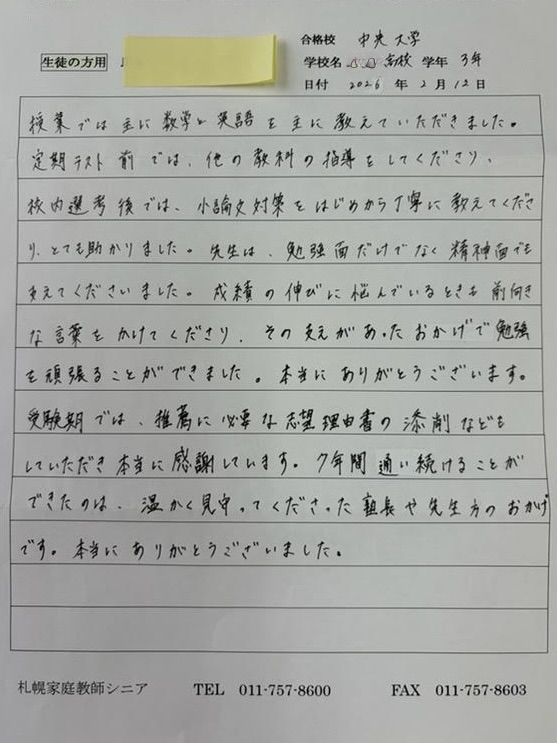 合格校 中央大学
生徒の方用
学校名 高校 学年 3年
日付 2026 年 2 月 12 日
授業では主に数学と英語を主に教えていただきました。
定期テスト前では、他の教科の指導をしてくださり、
校内選考後では、小論文対策をはじめから丁寧に教えてくださ
り、とても助かりました。先生は、勉強面だけでなく精神面でも
支えてくださいました。成績の伸びに悩んでいるときも前向き
な言葉をかけてくださり、その支えがあったおかげで勉強
を頑張ることができました。本当にありがとうございます。
受験期では、推薦に必要な志望理由書の添削なども
していただき本当に感謝しています。7年間通い続けることが
できたのは、温かく見守ってくださった塾長や先生方のおかげ
です。本当にありがとうございました。
札幌家庭教師シニア TEL 011-757-8600 FAX 011-757-8603